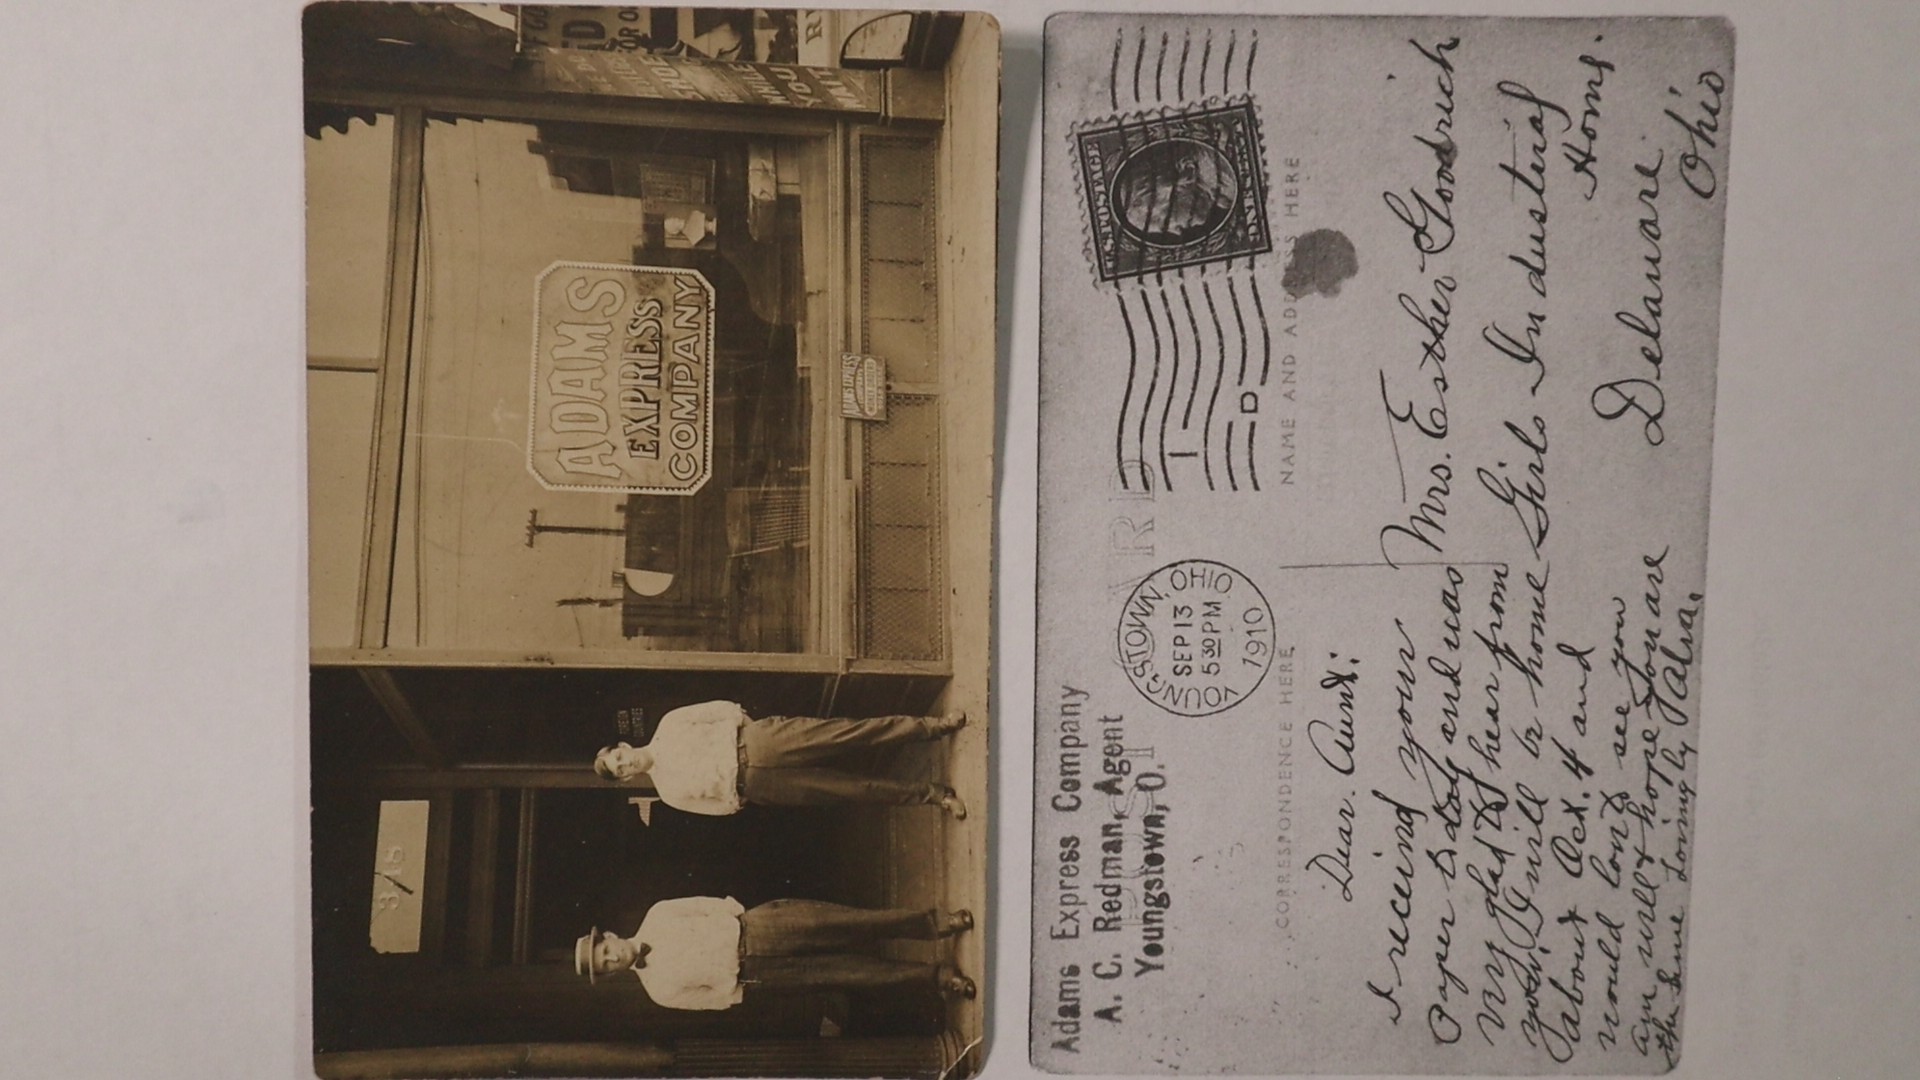 ADAMS
EXPRESS
COMPANY
ADAMS EXPRESS
FOREIGN
COUNTRIES
318
WAIT
YOU
WHILE
Adams Express Company
A. C. Redman, Agent
Youngstown, O.
POST CARD
YOUNGSTOWN, OHIO
SEP 13
5 30 PM
1910
1
D
U.S. POSTAGE
ONE CENT
CORRESPONDENCE HERE
NAME AND ADDRESS HERE
Dear. Aunt:
I receivd your
Paper to day and was
vry glad to hear from
you. I will be home
about Oct. 4 and
would long to see you
am well & hope you are
the same Lovingly
Mrs. Esther Goodrich
Girls Industural
Home.
Delaware.
Ohio